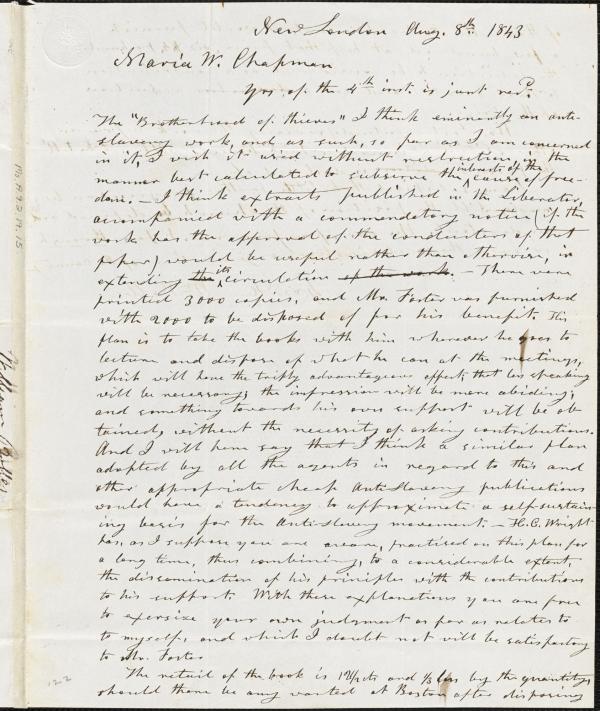 New London Aug. 8th 1843
Maria W. Chapman
Yrs of the 4th inst. is just recd.
The "Brotherhood of thieves" I think eminently an anti-
slavery work, and as such, so far as I am concerned
in it, I wish it used without restriction, in the
manner best calculated to subserve the interests of the cause of free-
dom. — I think extracts published in the Liberator,
accompanied with a commendatory notice (if the
work has the approval of the conductors of that
paper) would be useful rather than otherwise, in
extending the its circulation of the work. — There were
printed 3000 copies, and Mr. Foster was furnished
with 2000 to be disposed of for his benefit. His
plan is to take the books with him wherever he goes to
lecture and dispose of what he can at the meetings,
which will have the triply advantageous effect; that less speaking
will be necessary; the impression will be more abiding;
and something towards his own support will be ob-
tained, without the necessity of asking contributions.
And I will here say that I think a similar plan
adopted by all the agents in regard to this and
other appropriate cheap Anti-Slavery publications
would have a tendency to approximate a self-sustain-
ing basis for the Anti-Slavery movement. — H.C. Wright
has, as I suppose you are aware, practised on this plan for
a long time, thus combining, to a considerable extent,
the dissemination of his principles with the contributions
to his support. With these explanations you are free
to exersize your own judgment as far as relates to
to myself, and which I doubt not will be satisfactory
to Mr. Foster.
The retail of the book is 12½ cts and ⅓ less by the quantity,
should there be any wanted at Boston after disposing
Ms. A.9.2.19.15
122